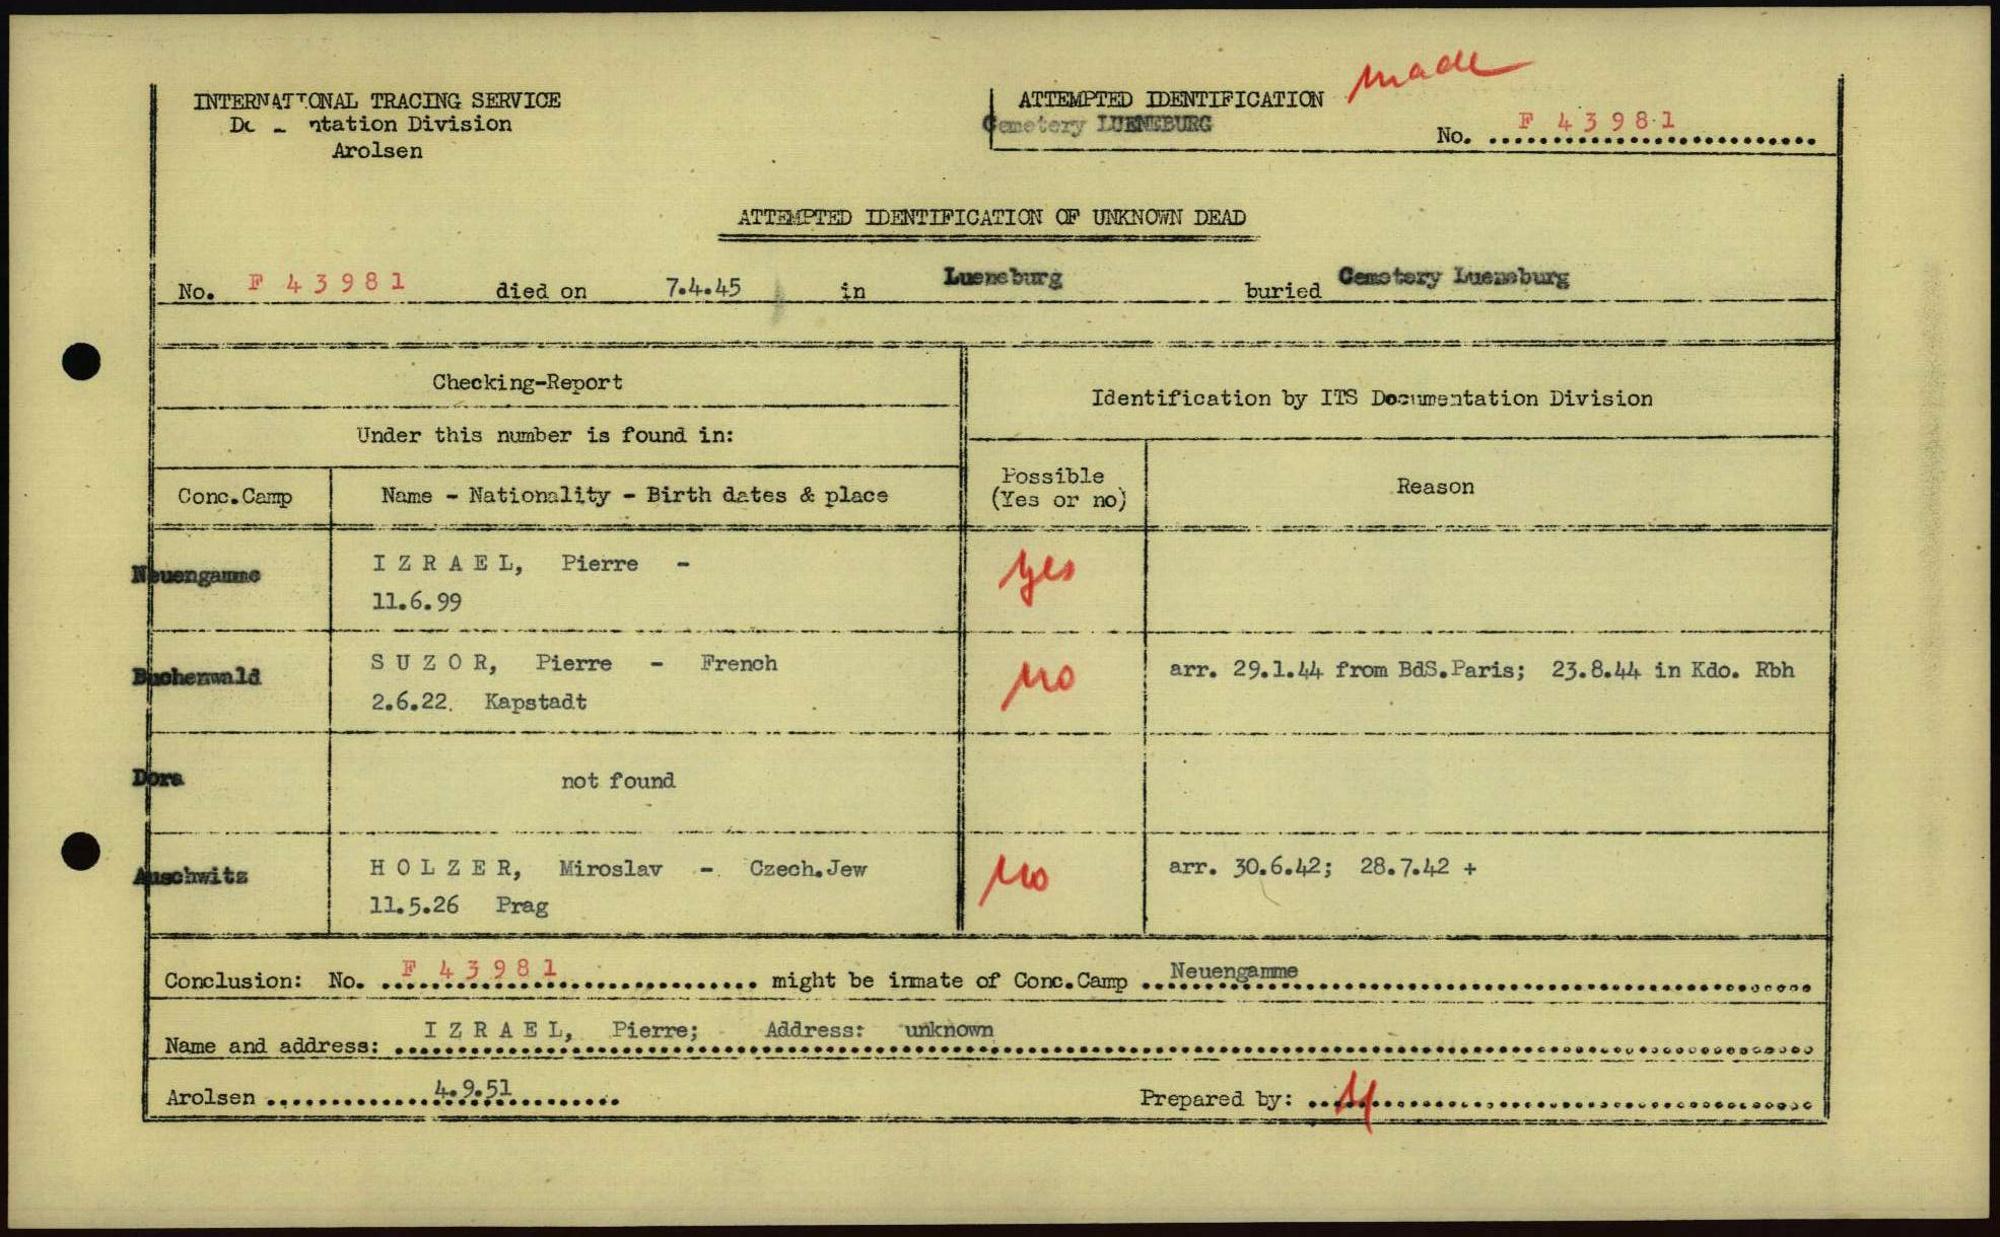 INTERNATIONAL TRACING SERVICE
ntation Division
Arolsen
ATTEMPTED IDENTIFICATION made
Cemetery LUENEBURG
No. F 43981
ATTEMPTED IDENTIFICATION OF UNKNOWN DEAD
No. F 43981 died on 7.4.45 in Lueneburg buried Cemetery Lueneburg
Checking-Report
Identification by ITS Documentation Division
Under this number is found in:
Conc.Camp Name - Nationality - Birth dates & place Possible (Yes or no) Reason
Neuengamme I Z R A E L, Pierre - yes
11.6.99
Buchenwald S U Z O R, Pierre - French no arr. 29.1.44 from BdS.Paris; 23.8.44 in Kdo. Rbh
2.6.22. Kapstadt
Dora not found
Auschwitz H O L Z E R, Miroslav - Czech.Jew no arr. 30.6.42; 28.7.42 +
11.5.26 Prag
Conclusion: No. F 43981 might be inmate of Conc.Camp Neuengamme
Name and address: I Z R A E L, Pierre; Address: unknown
Arolsen 4.9.51 Prepared by: